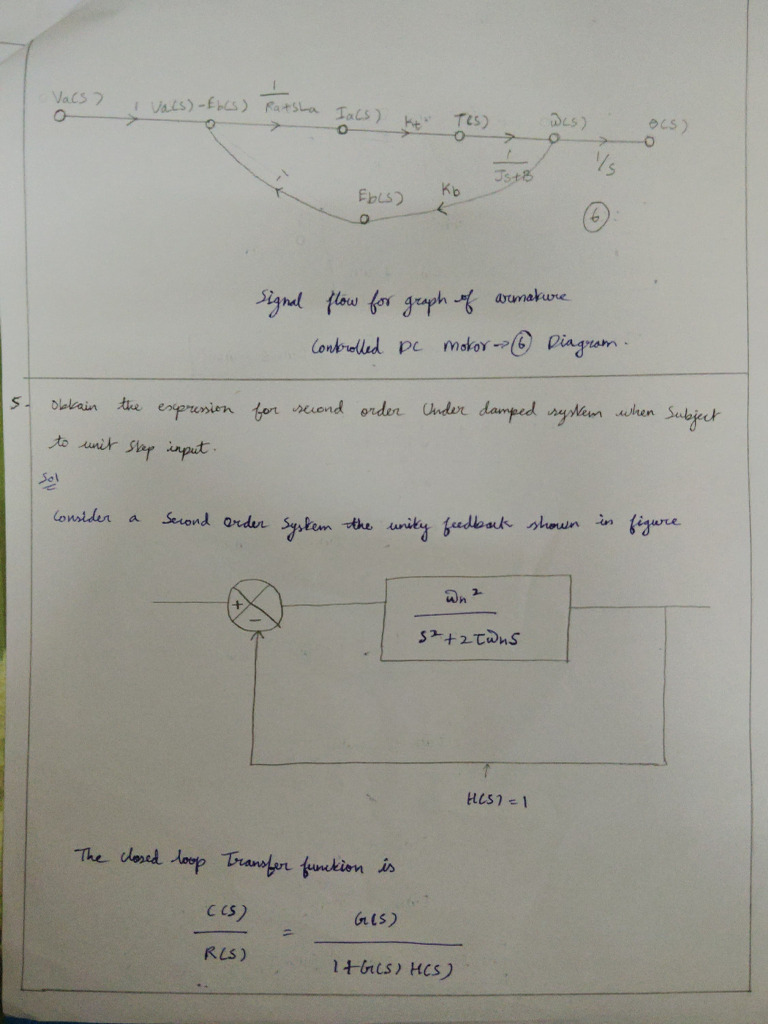 Va(s) 1 Va(s)-Eb(s) 1/Ra+sLa Ia(s) Kt T(s) 1/Js+B ω(s) 1/s θ(s)
-1 Eb(s) Kb
6
Signal flow for graph of armature
Controlled DC motor → 6 Diagram.
5. Obtain the expression for second order Under damped system when Subject
to unit step input.
Sol
Consider a Second order System the unity feedback shown in figure
+ -
ωn²
S²+2τωnS
H(S)=1
The closed loop Transfer function is
C(S)
R(S)
=
G(S)
1+G(S) H(S)